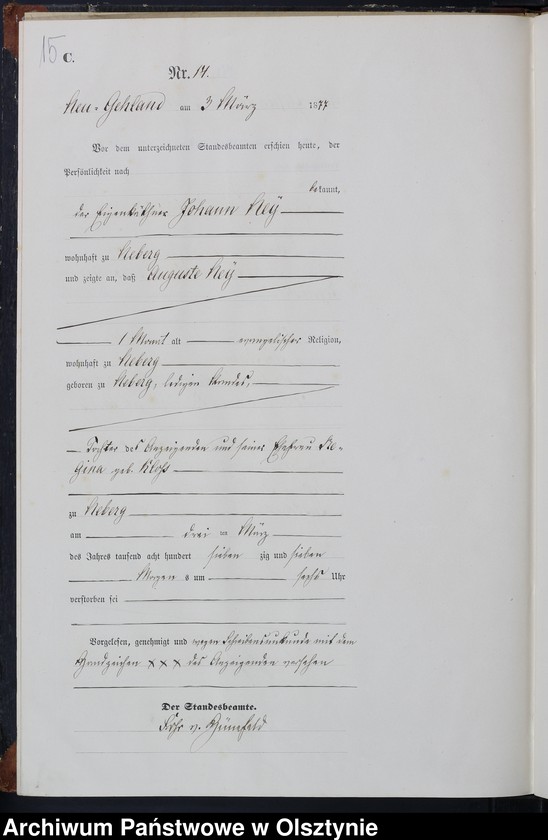 15
C.
Nr. 14.
Neu-Gehland am 3 März 1877
Vor dem unterzeichneten Standesbeamten erschien heute, der
Persönlichkeit nach
bekannt,
der Eigenkäthner Johann Ney
wohnhaft zu Neberg
und zeigte an, daß Auguste Ney
1 Monat alt evangelischer Religion,
wohnhaft zu Neberg
geboren zu Neberg, ledigen Standes,
Tochter des Anzeigenden und seiner Ehefrau Re-
gina geb. Kloss
zu Neberg
am drei ten März
des Jahres tausend acht hundert sieben zig und sieben
Morgen s um sechs Uhr
verstorben sei
Vorgelesen, genehmigt und wegen Schreibensunkunde mit dem
Handzeichen XXX des Anzeigenden versehen
Der Standesbeamte.
v.
Archiwum Państwowe w Olsztynie